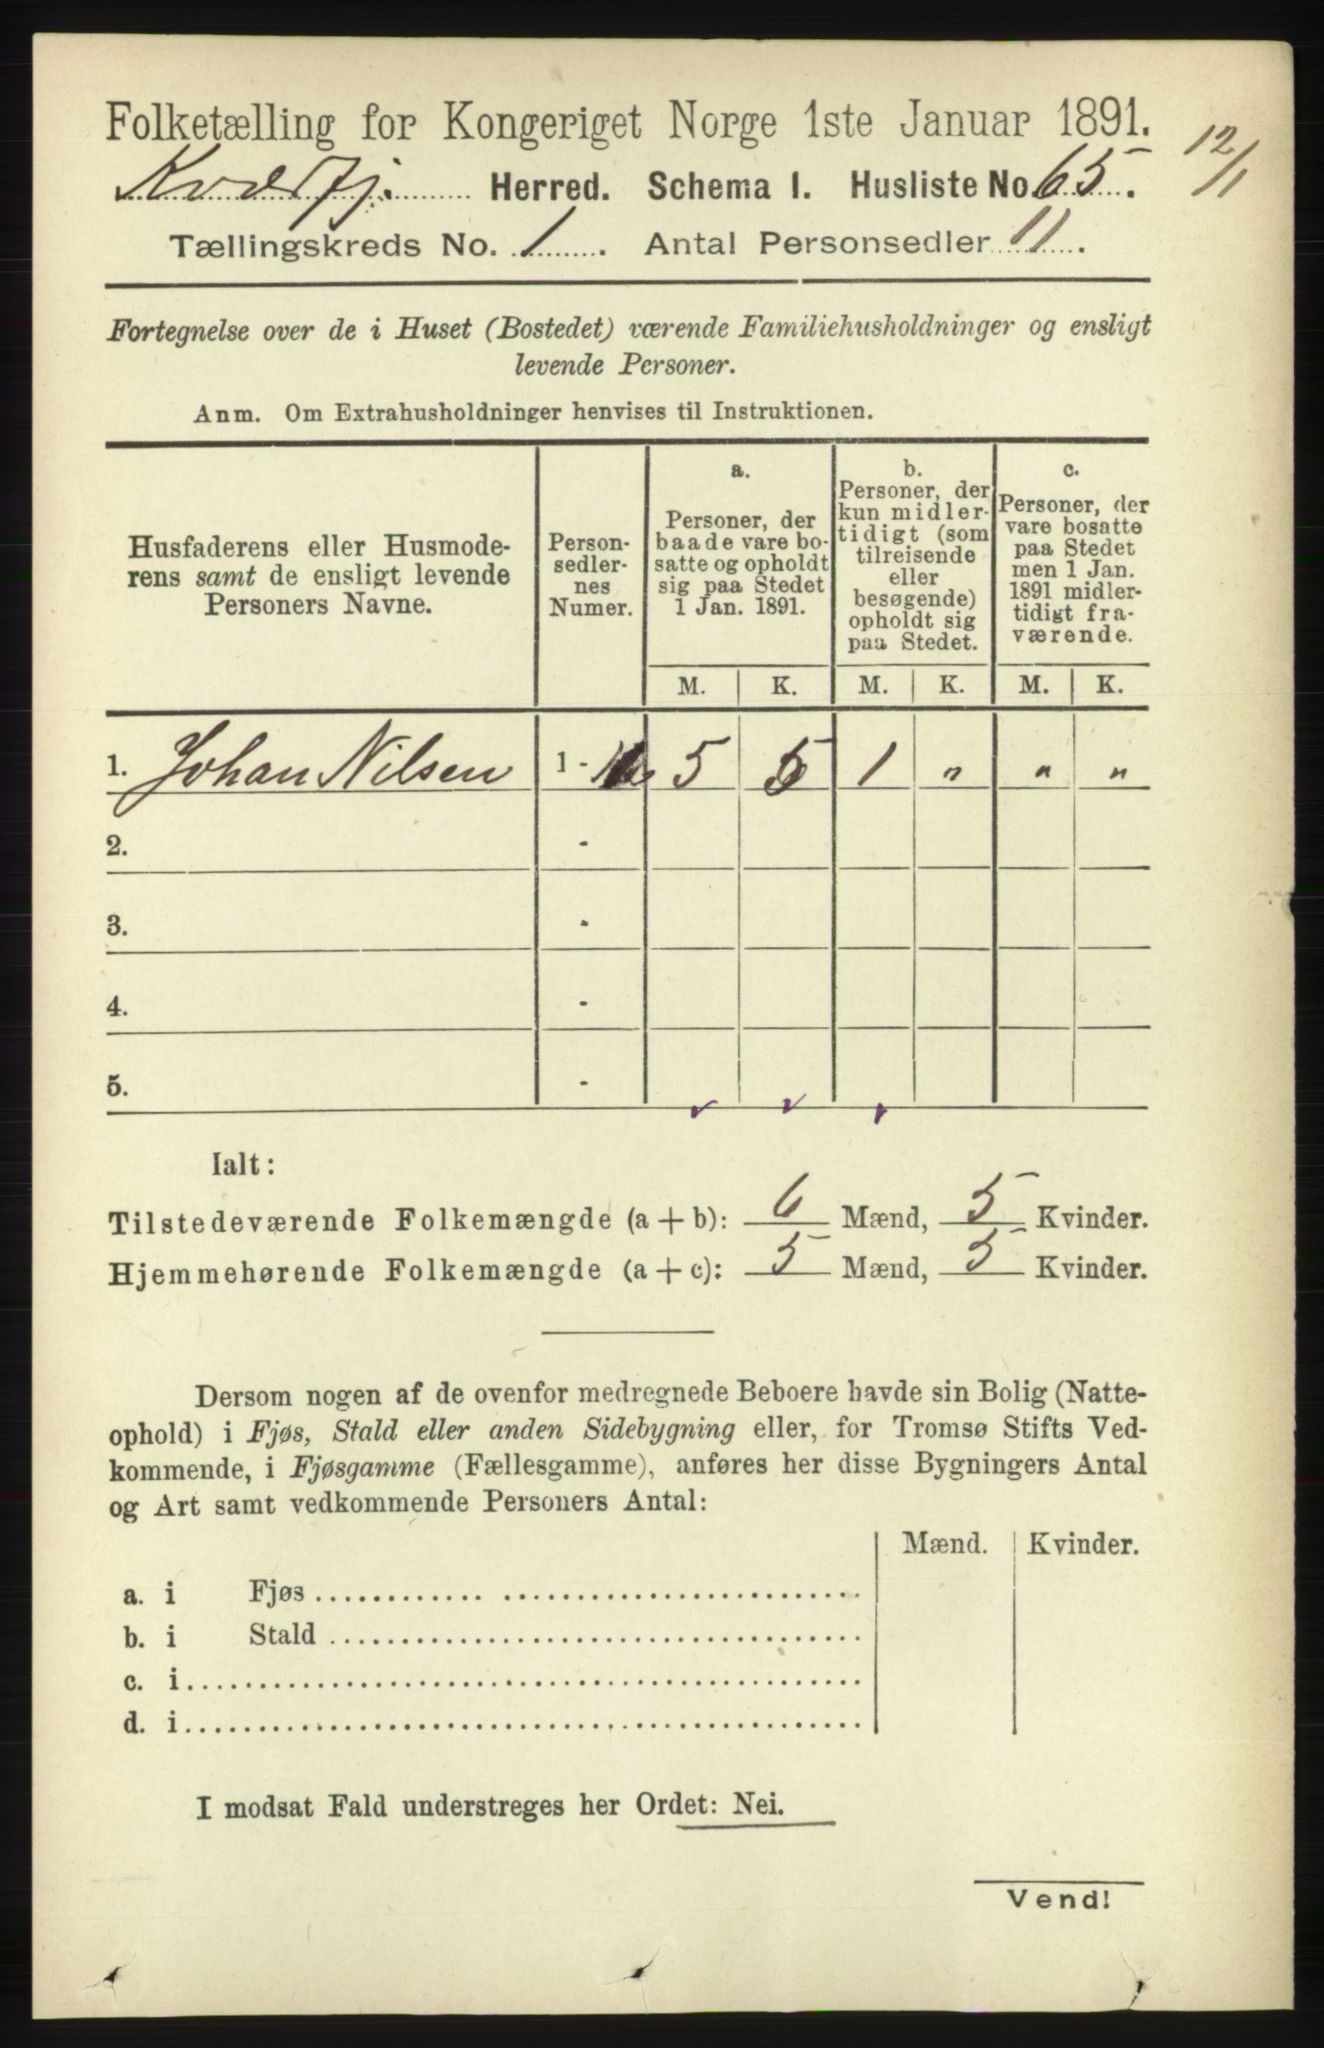 Folketælling for Kongeriget Norge 1ste Januar 1891.
12/1
Kvæfj. Herred. Schema I. Husliste No 65.
Tællingskreds No. 1. Antal Personsedler 11.
Fortegnelse over de i Huset (Bostedet) værende Familiehusholdninger og ensligt
levende Personer.
Anm. Om Extrahusholdninger henvises til Instruktionen.
Husfaderens eller Husmode-
rens samt de ensligt levende
Personers Navne.
Person-
sedler-
nes
Numer.
a.
Personer, der
baade vare bo-
satte og opholdt
sig paa Stedet
1 Jan. 1891.
b.
Personer, der
kun midler-
tidigt (som
tilreisende
eller
besøgende)
opholdt sig
paa Stedet.
c.
Personer, der
vare bosatte
paa Stedet
men 1 Jan.
1891 midler-
tidigt fra-
værende.
M. K. M. K. M. K.
1. Johan Nilsen 1 - 11 5 5 1 " " "
2. -
3. -
4. -
5. -
Ialt:
Tilstedeværende Folkemængde (a + b): 6 Mænd, 5 Kvinder.
Hjemmehørende Folkemængde (a + c): 5 Mænd, 5 Kvinder.
Dersom nogen af de ovenfor medregnede Beboere havde sin Bolig (Natte-
ophold) i Fjøs, Stald eller anden Sidebygning eller, for Tromsø Stifts Ved-
kommende, i Fjøsgamme (Fællesgamme), anføres her disse Bygningers Antal
og Art samt vedkommende Personers Antal:
Mænd. Kvinder.
a. i Fjøs
b. i Stald
c. i
d. i
I modsat Fald understreges her Ordet: Nei.
Vend!